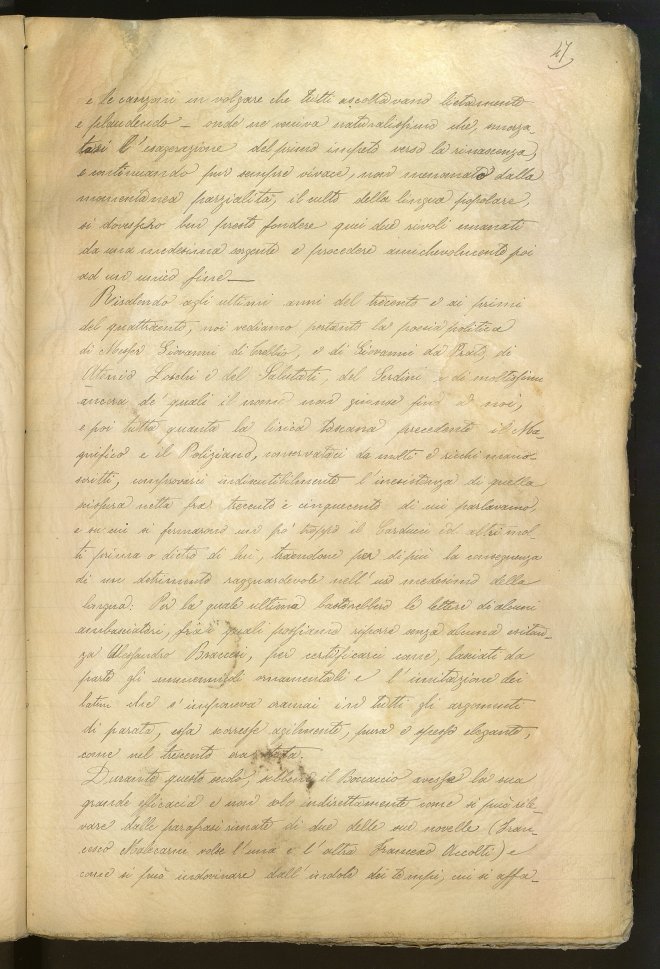 47
e le canzoni in volgare che tutti ascoltavano lietamente
e plaudendo – onde ne veniva naturalissimo che, smorza
tasi l'esagerazione del primo impeto verso la rinascenza,
e continuando pur sempre vivace, non menomato dalla
momentanea parzialità, il culto della lingua popolare,
si dovessero ben presto fondere quei due rivoli emanati
da una medesima sorgente e procedere amichevolmente poi
ad un unico fine —
Risalendo agli ultimi anni del trecento e ai primi
del quattrocento, noi vediamo pertanto la poesia politica
di Messer Giovanni di e di Giovanni da Prato, di
Antonio Loschi e del Salutati, del Serdini, e di moltissimi
ancora de' quali il nome non giunse fino a noi,
e poi tutta quanta la lirica toscana precedente il Ma-
gnifico e il Poliziano, conservataci da molti e ricchi mano-
scritti, comprovarci indiscutibilmente l'inesistenza di quella
netta fra trecento e cinquecento di cui parlavamo,
e su cui si fermarono un po' troppo il Carducci ed altri mol-
ti prima o dietro di lui, traendone per di più la conseguenza
di un detrimento ragguardevole nell'uso medesimo della
lingua: Per la quale ultima basterebbero le lettere di alcuni
ambasciatori, fra i quali possiamo riporre senza alcuna esitan-
za Alessandro Braccesi, per certificarci come, lasciati da
parte gli ornamentali e l'imitazione dei
latini che s'imponeva oramai in tutti gli argomenti
di parata, essa scorresse agilmente, pura e spesso elegante,
come nel trecento
Durante questo secolo, sebbene il Boccaccio avesse la sua
grande efficacia e non solo indirettamente come si può rile-
vare dalle parafrasi rimate di due delle sue novelle (Fran-
cesco Malecarni volse l'una e l'altra Francesco Accolti) e
come si può indovinare dall'indole dei tempi, cui si affa-